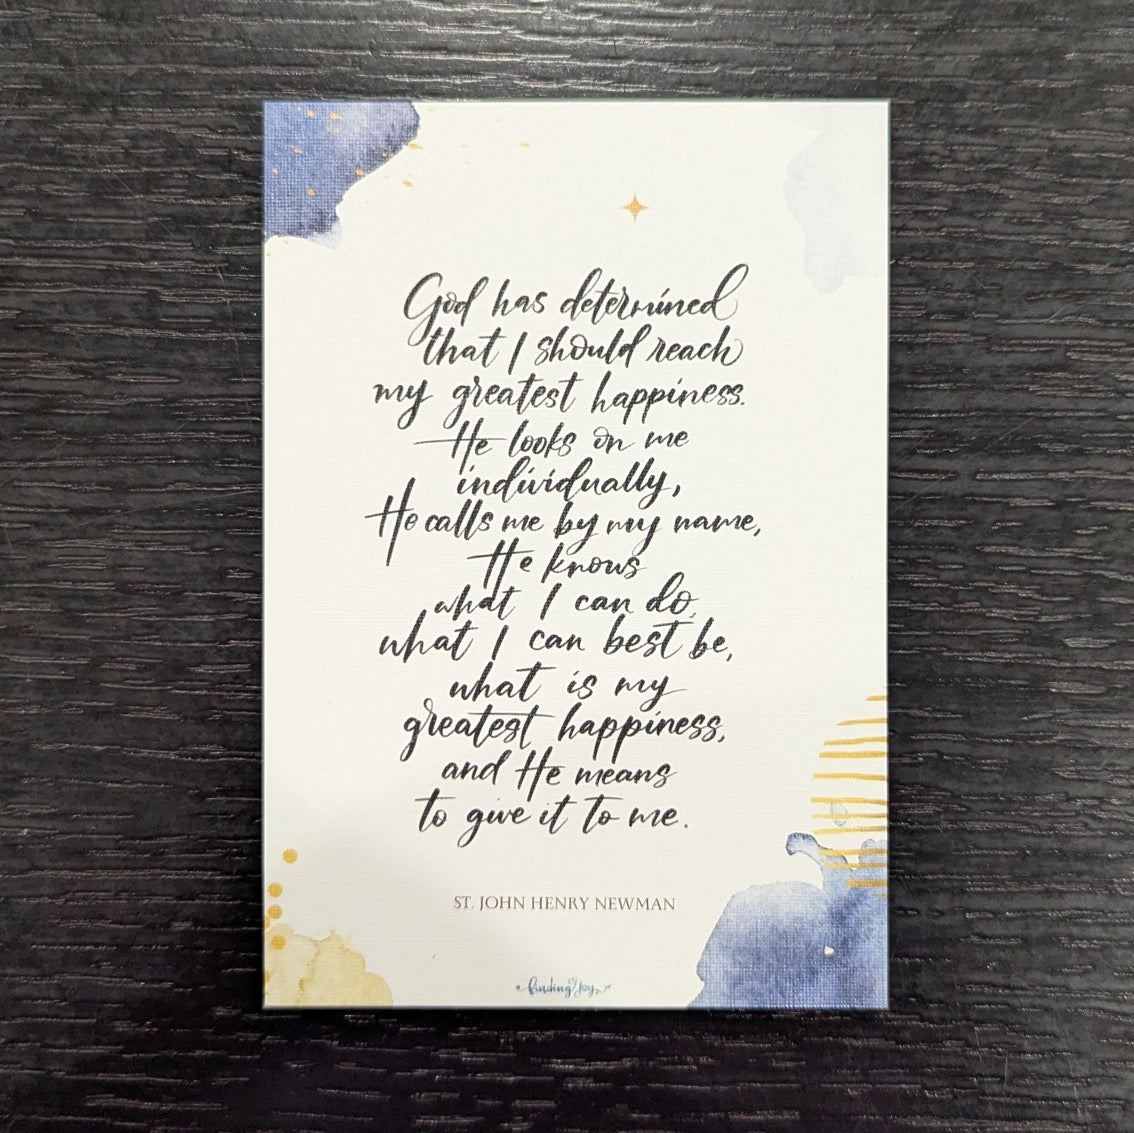 God has determined
that I should reach
my greatest happiness.
He looks on me
individually,
He calls me by my name,
He knows
what I can do,
what I can best be,
what is my
greatest happiness,
and He means
to give it to me.
ST. JOHN HENRY NEWMAN
finding Joy